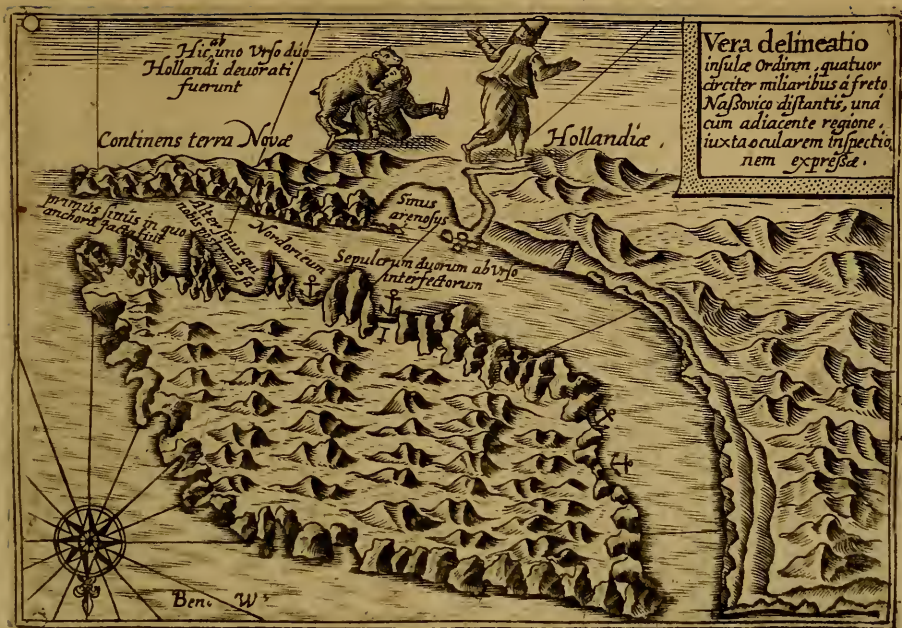 Hic, ab uno Urso duo
Hollandi devorati
fuerunt
Vera delineatio
insulæ Ordinm, quatuor
circiter miliaribus á freto
Naßovico distantis, uná
cum adiacente regione,
iuxta ocularem inspectio,
nem expreßæ.
Continens terra Novæ Hollandiæ.
primus sinus in quo
anchora iacta fuit
Alter sinus qui
nobis
Nordoricum
Sinus
arenosus
Sepulcrum duorum ab Urso
interfectorum
Ben. W.